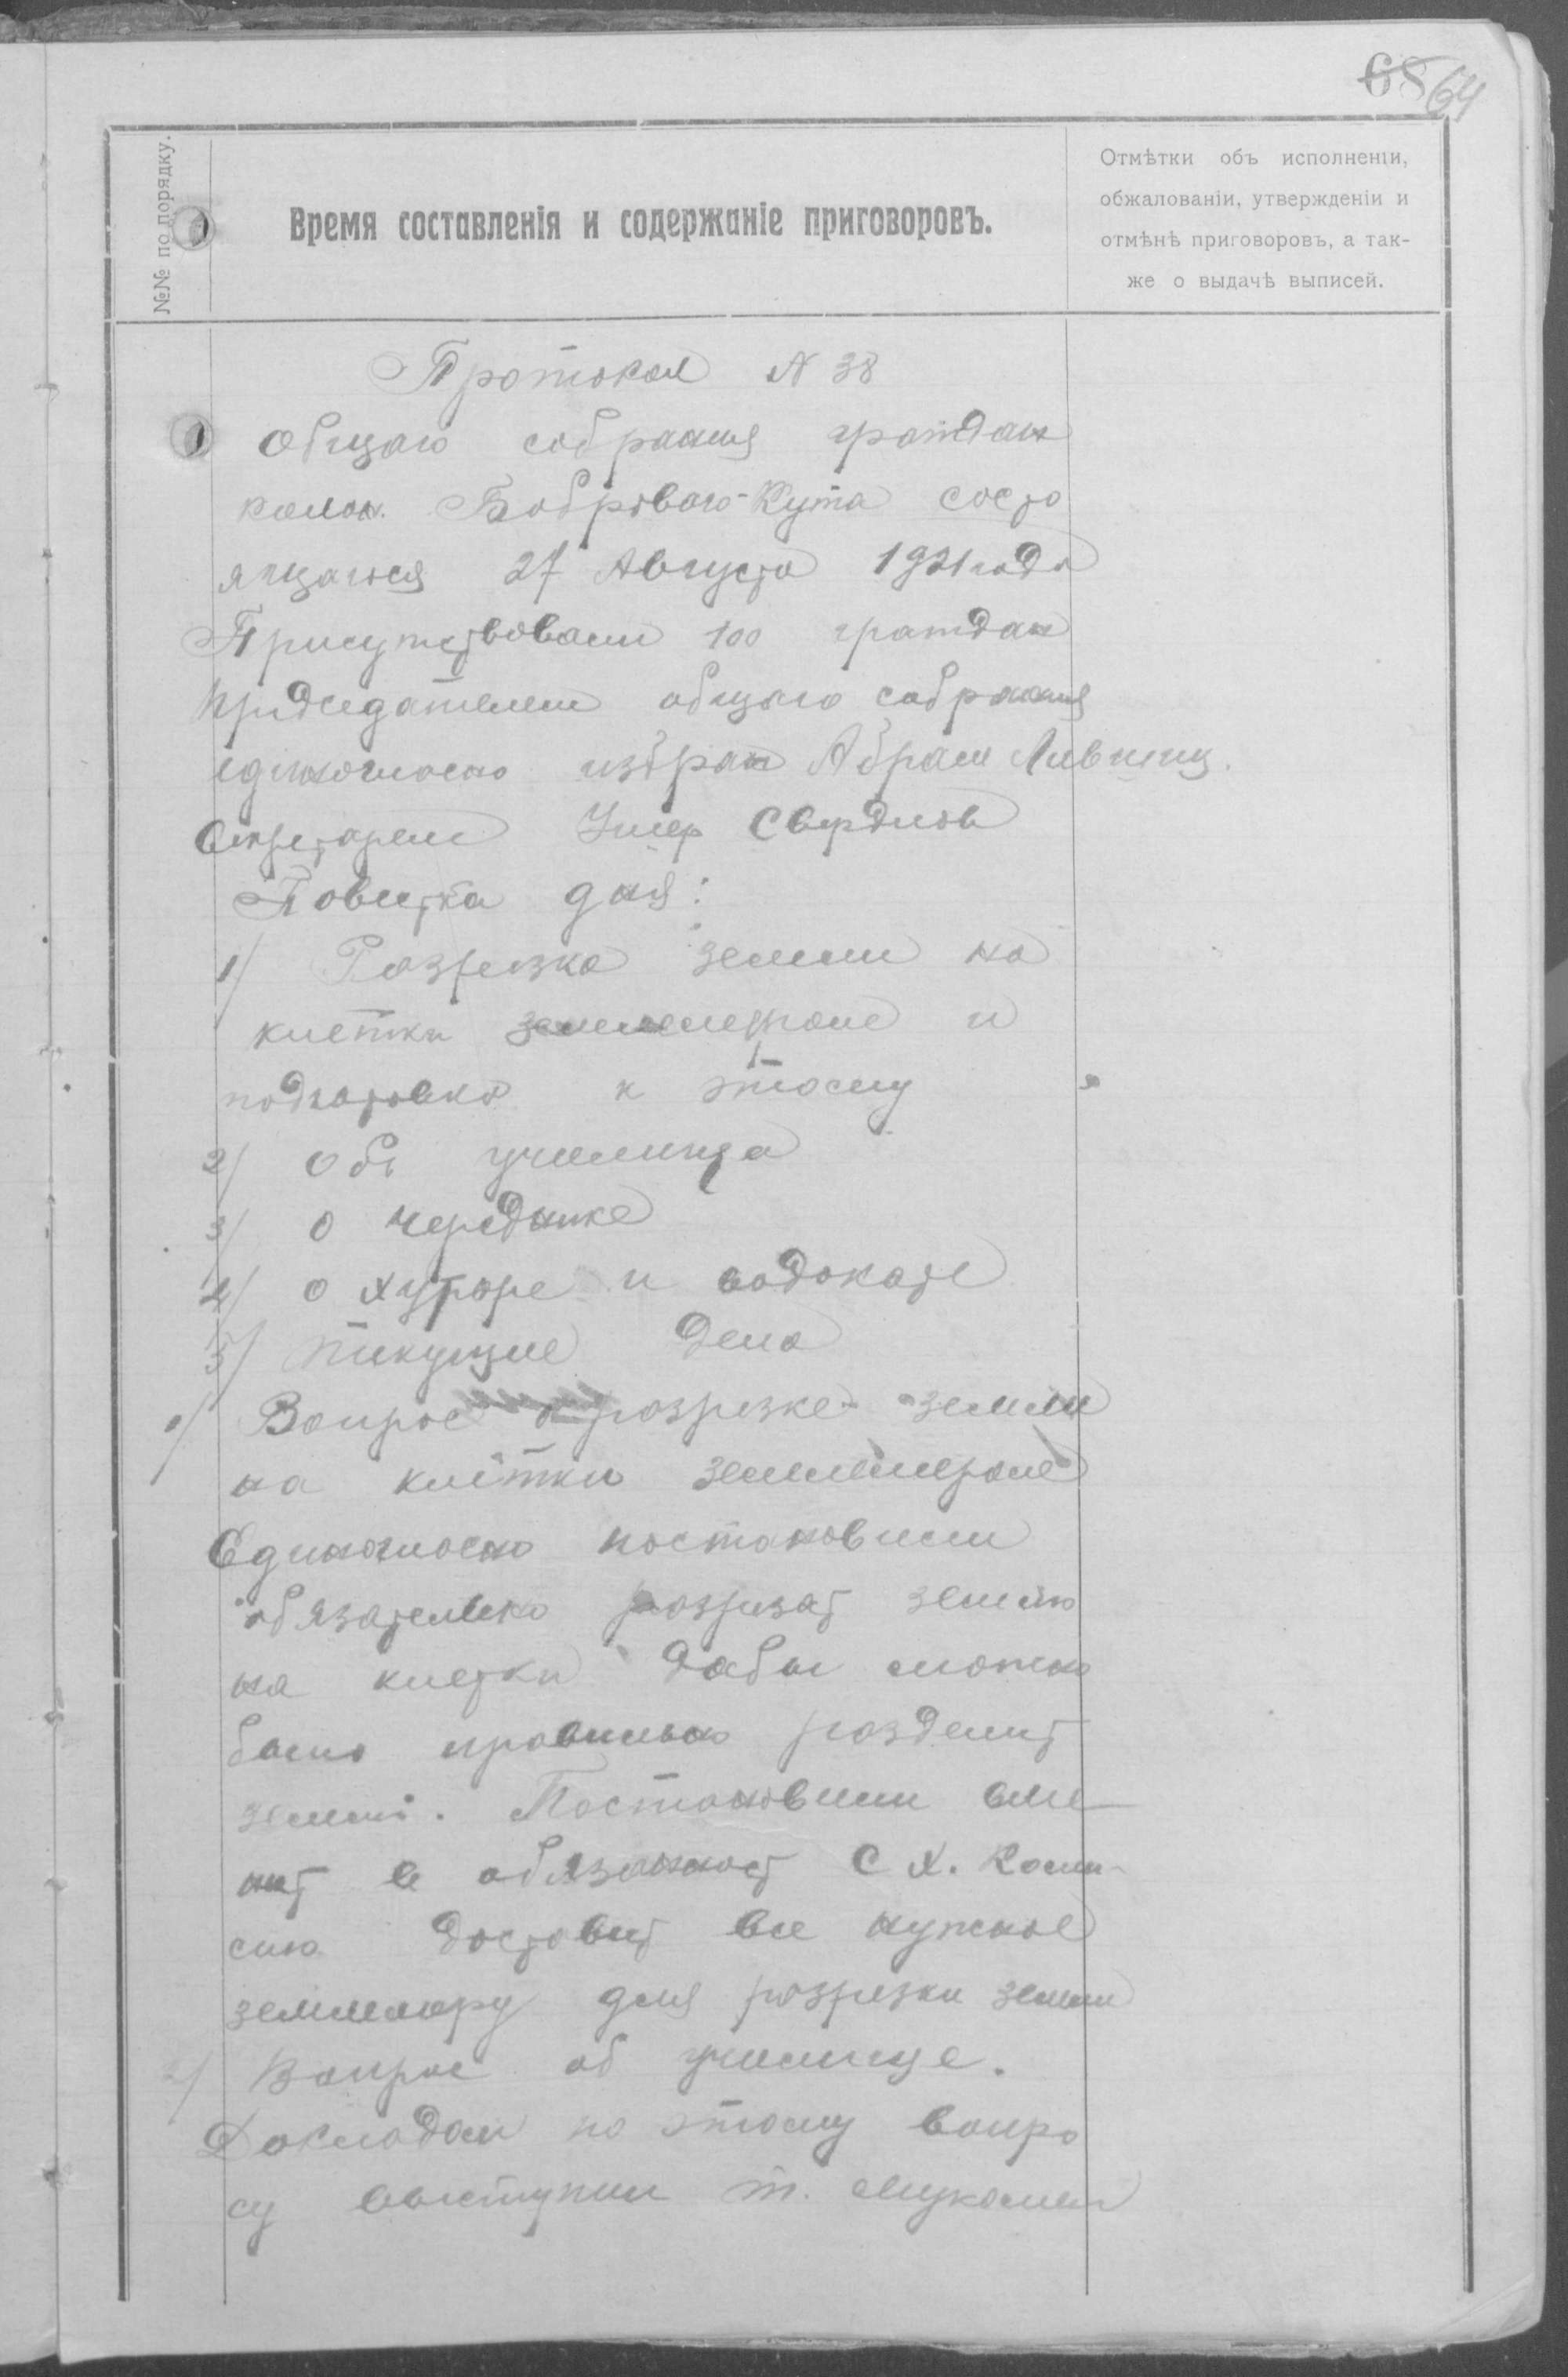 68 64
№№ по порядку.
Время составленія и содержаніе приговоровъ.
Отмѣтки объ исполненіи,
обжалованіи, утвержденіи и
отмѣнѣ приговоровъ, а так-
же о выдачѣ выписей.
Протокол N 38
Общаго собрания граждан
колон. Бобрового-Кута состо
ящагося 27 Августа 1921 года
Присутствовали 100 граждан
председателем общего собрания
единогласно избран Абрам Лившиц.
Секретарем Умер Свердлов
Повестка дня:
1/ Разрезка земли на
клетки землемером и
подготовка к этому
2/ Об училища
3/ О череднике
4/ О хуторе и водокате
5/ текущие дела
1/ Вопрос о разрезке земли
на клетки землемером
Единогласно постановили
обязательно розрезат землю
на клетки дабы можно
было правильно розделит
землю. Постановили вме
нит в обязаност С Х. Коми-
сию доставит все нужное
землемеру для розрезки земли
2/ Вопрос об училище.
Докладом по этому вопро
су выступил т.